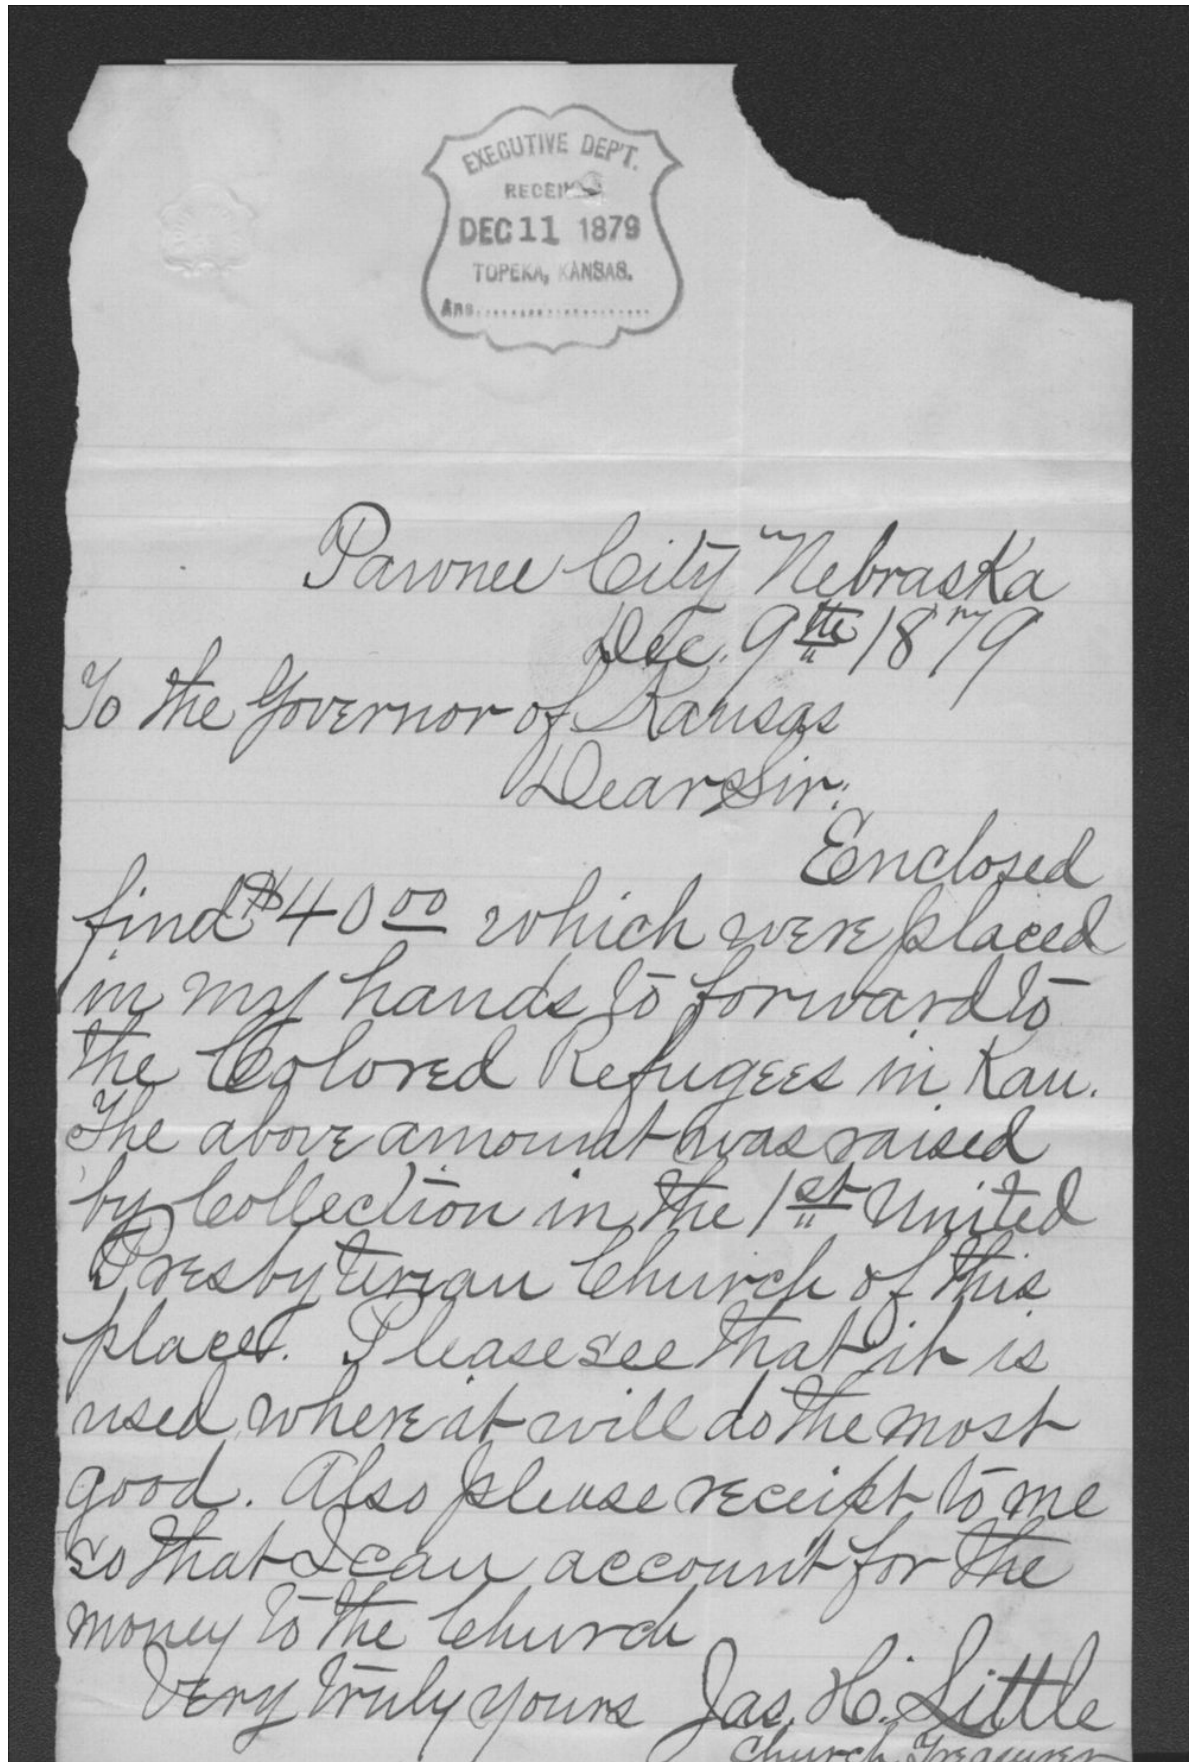 EXECUTIVE DEP'T.
RECEIVED
DEC 11 1879
TOPEKA, KANSAS.
Ans.
Pawnee City Nebraska
Dec. 9th 1879
To the Governor of Kansas
Dear Sir:
Enclosed
find $40 00 which were placed
in my hands to forward to
the Colored Refugees in Kan.
The above amount was raised
by Collection in the 1st United
Presbyterian Church of this
place. Please see that it is
used where it will do the most
good. Also please receipt to me
so that I can account for the
money to the Church
Very truly yours Jas. H. Little
Church Treasurer